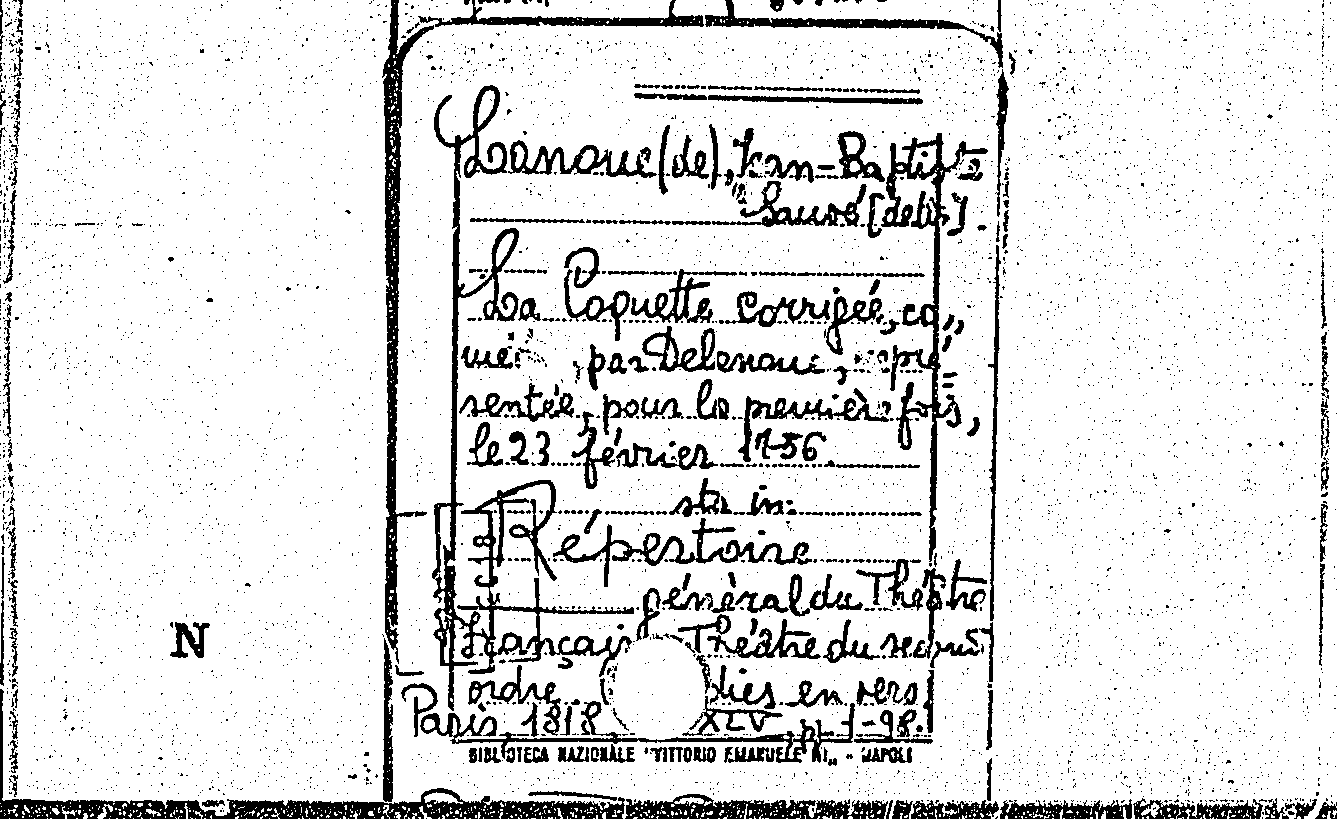 Lanoue (de), Jean-Baptiste
Sauvé [detto].
La Coquette corrigée, co„
par Delanoue, repré=
sentée, pour la première fois,
le 23 février 1756.
sta in:
Répertoire
général du Théâtre
Français Théâtre du second
ordre en vers.
Paris, 1818, XLV, pp. 1-98.
BIBLIOTECA NAZIONALE "VITTORIO EMANUELE III„ - NAPOLI
N